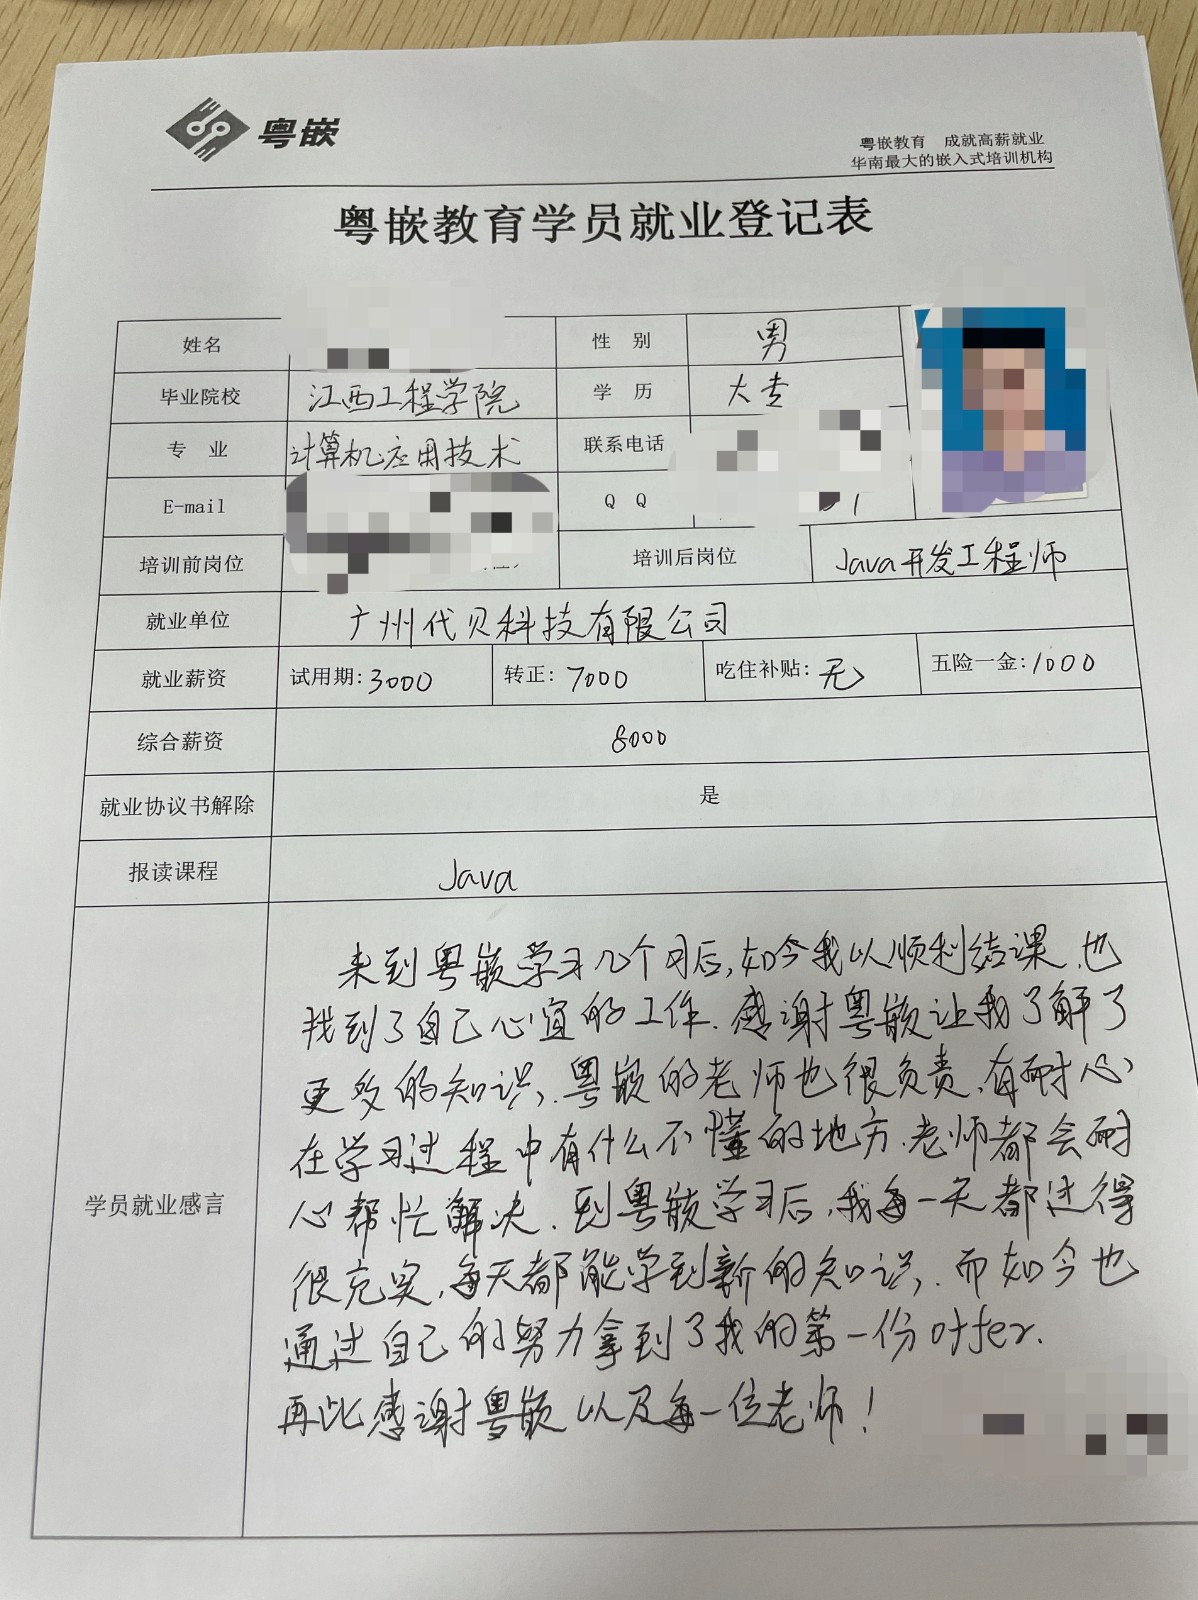 粤嵌
粤嵌教育 成就高薪就业
华南最大的嵌入式培训机构
粤嵌教育学员就业登记表
姓名 性 别 男
毕业院校 江西工程学院 学 历 大专
专 业 计算机应用技术 联系电话
E-mail Q Q
培训前岗位 培训后岗位 Java开发工程师
就业单位 广州代贝科技有限公司
就业薪资 试用期:3000 转正:7000 吃住补贴:无 五险一金:1000
综合薪资 8000
就业协议书解除 是
报读课程 Java
学员就业感言
来到粤嵌学习几个月后,如今我以顺利结课,也
找到了自己心宜的工作.感谢粤嵌让我了解了
更多的知识,粤嵌的老师也很负责,有耐心,
在学习过程中有什么不懂的地方,老师都会耐
心帮忙解决.到粤嵌学习后,我每一天都过得
很充实,每天都能学到新的知识,而如今也
通过自己的努力拿到了我的第一份offer.
再此感谢粤嵌以及每一位老师!